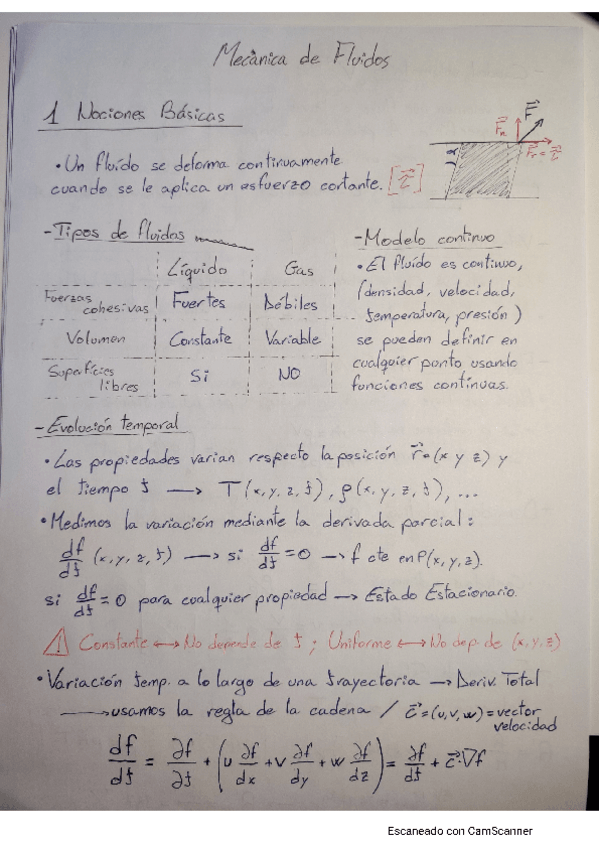 Mecànica de Fluidos
1 Nociones Básicas
F⃗
F⃗n
α
F⃗τ = τ⃗
• Un fluído se deforma continuamente
cuando se le aplica un esfuerzo cortante. [τ⃗]
- Tipos de fluidos
Líquido Gas
Fuerzas cohesivas Fuertes Débiles
Volumen Constante Variable
Superficies libres Si NO
- Modelo continuo
• El fluído es continuo,
(densidad, velocidad,
temperatura, presión)
se pueden definir en
cualquier punto usando
funciones contínuas.
- Evolución temporal
• Las propiedades varian respecto la posición r⃗=(x y z) y
el tiempo t → T(x,y,z,t), ρ(x,y,z,t), ...
• Medimos la variación mediante la derivada parcial:
df/dt (x,y,z,t) → si df/dt = 0 → f cte en P(x,y,z).
si df/dt = 0 para cualquier propiedad → Estado Estacionario.
⚠ Constante ↔ No depende de t ; Uniforme ↔ No dep. de (x,y,z)
• Variación temp. a lo largo de una trayectoria → Deriv. Total
→ usamos la regla de la cadena / c⃗=(u,v,w)=vector
velocidad
df/dt = ∂f/∂t + (u ∂f/dx + v ∂f/dy + w ∂f/dz) = ∂f/dt + c⃗·∇f
Escaneado con CamScanner